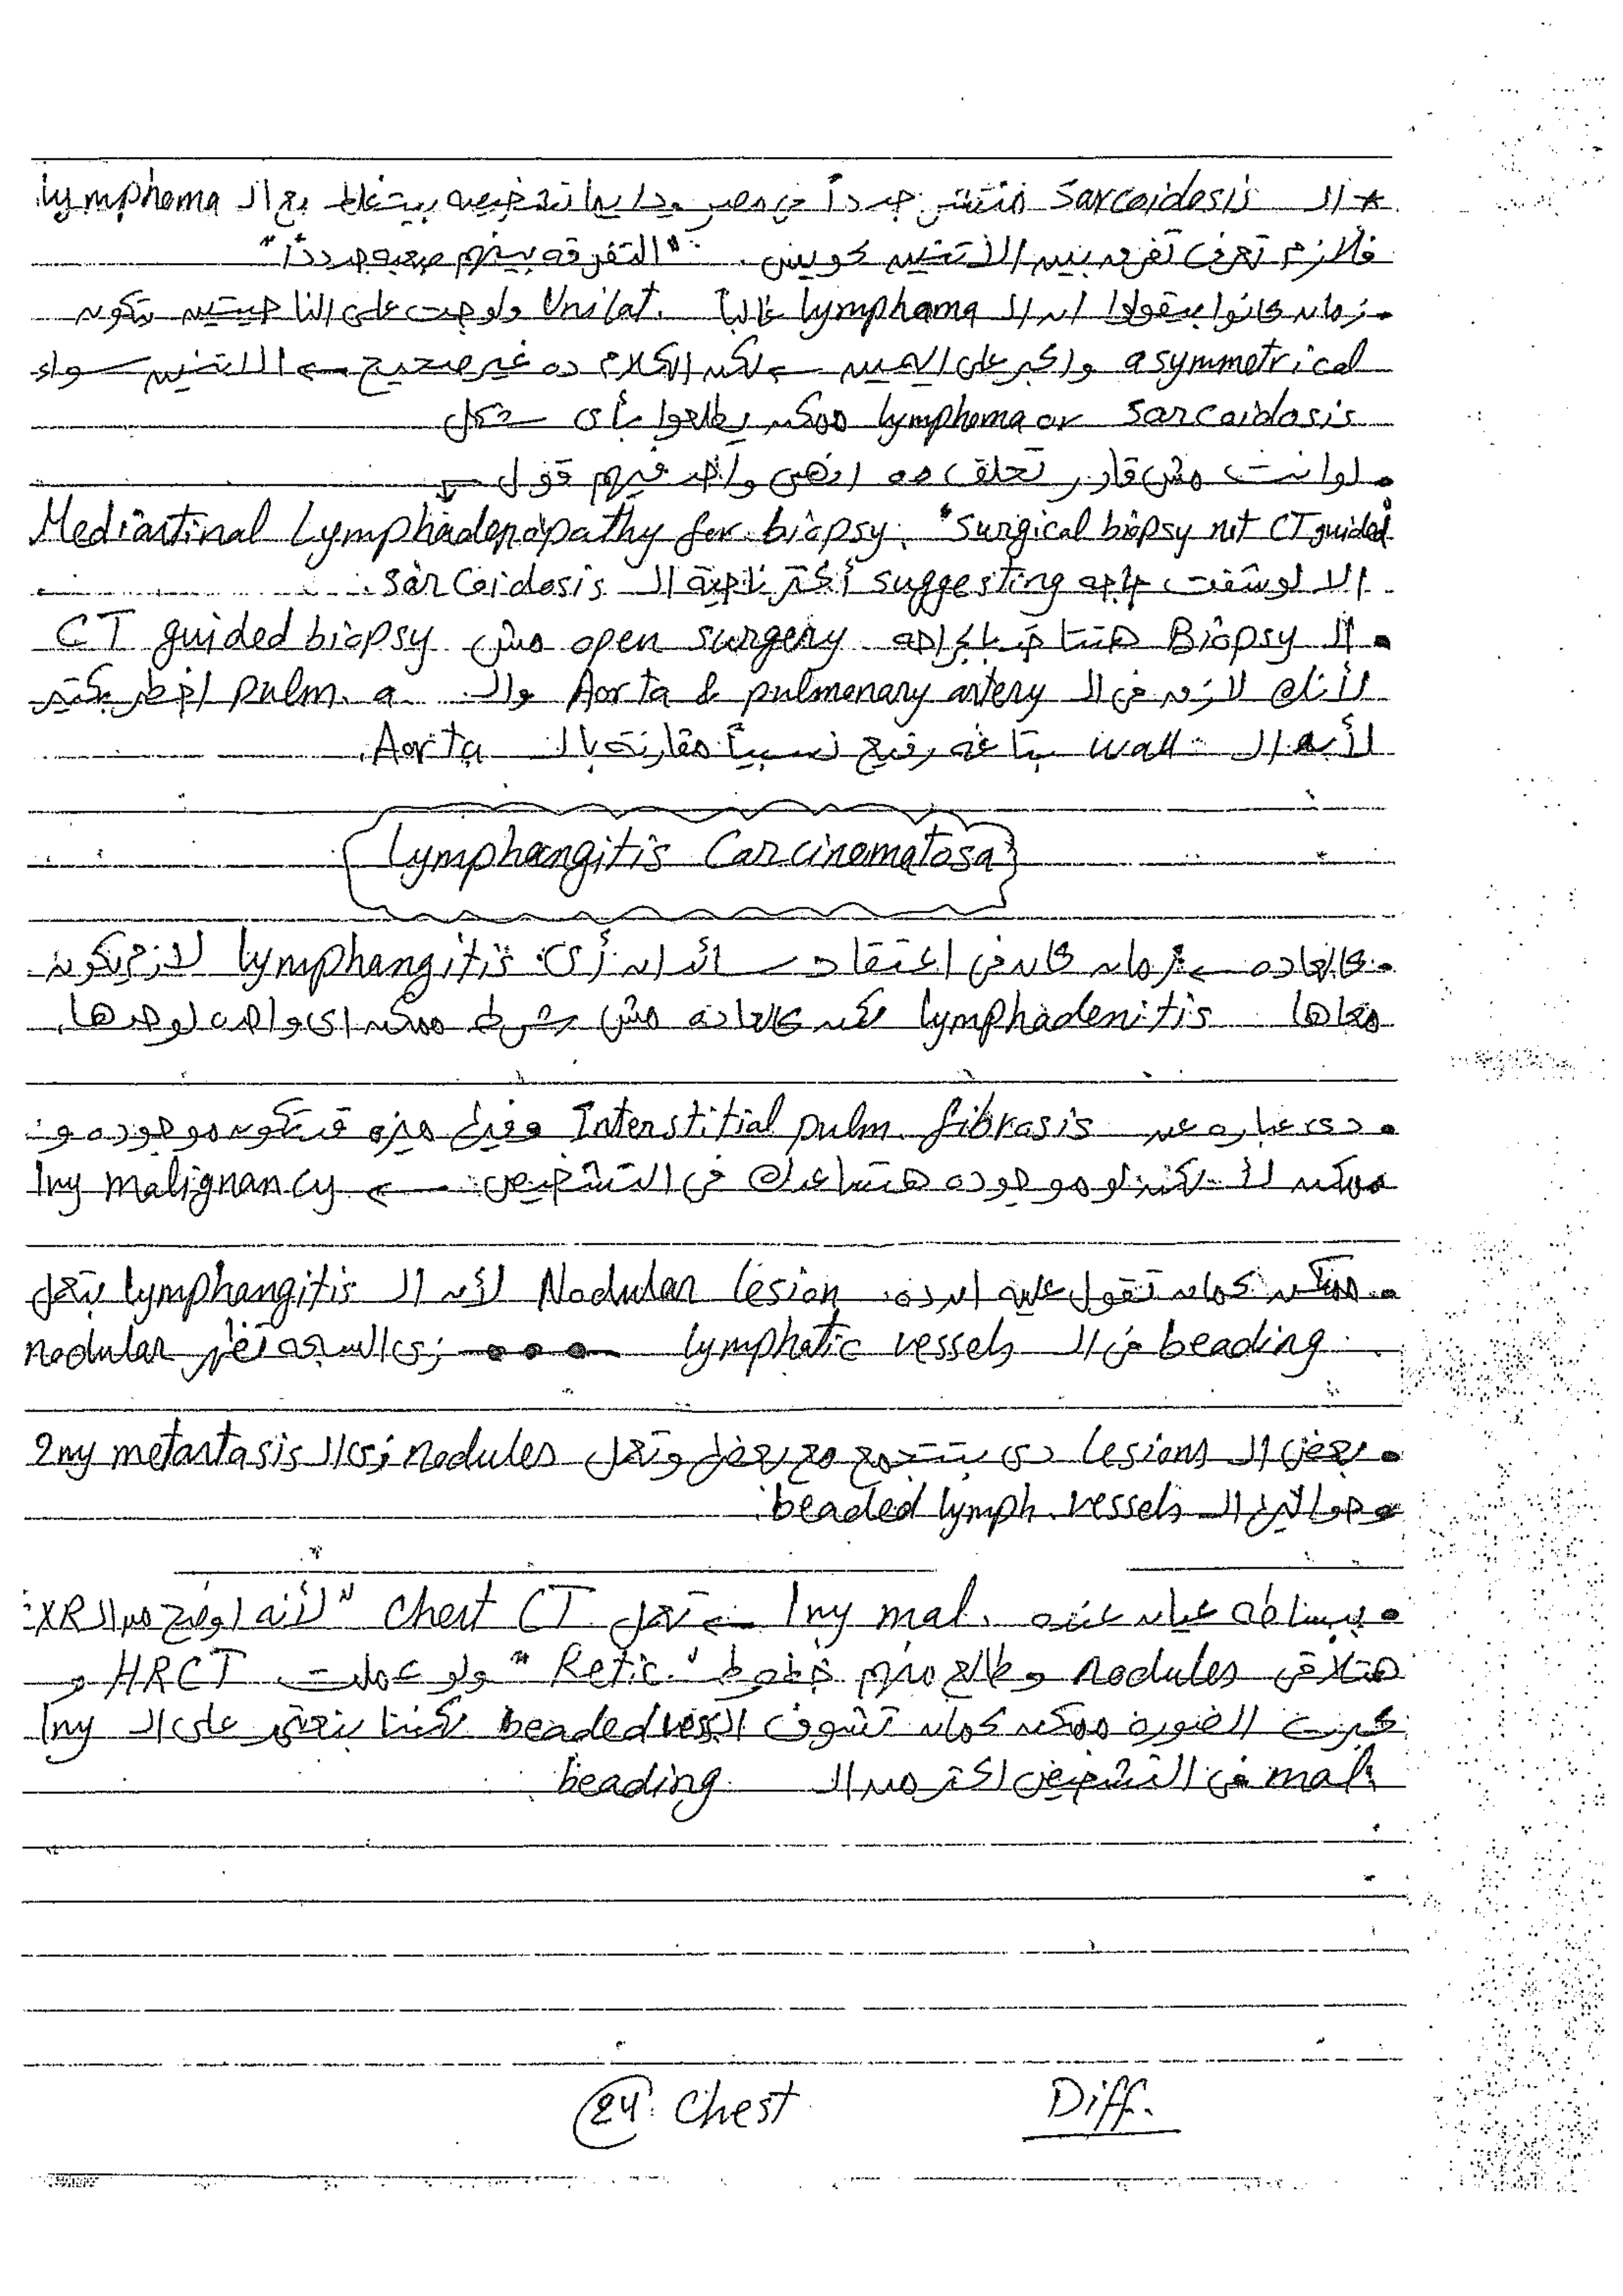 * الـ Sarcoidosis منتشر جداً في مصر ودايما تشخيصه بيتغلط مع الـ lymphoma.
فلازم تعرف تفرق بين الاتنين كويس. "التفرقه بينهم صعبه جداً"
. زمان كانوا بيقولوا ان الـ lymphoma غالباً Unilat. ولو جت على الناحيتين تكون
asymmetrical واكبر على اليمين ← لكن الكلام ده غير صحيح ← الاتنين سواء
sarcoidosis or lymphoma ممكن يطلعوا بأى شكل
. لو انت مش قادر تحلف مه انهى واحد فيهم قول ←
Mediastinal Lymphadenopathy for biopsy. "Surgical biopsy not CT guided"
الا لو شفت حاجه suggesting أكتر ناحية الـ sarcoidosis.
. الـ Biopsy هتتاخد بالجراحه open surgery مش CT guided biopsy
لأنك لازق في الـ Aorta & pulmonary artery والـ pulm. a اخطر بكتير
لأن الـ wall بتاعه رفيع نسبياً مقارنة بالـ Aorta.
Lymphangitis Carcinomatosa
. كالعاده ← زمان كان في اعتقاد سائد ان أى lymphangitis لازم يكون
معاها lymphadenitis لكن كالعادة مش شرط ممكن اى واحده لوحدها.
. دى عباره عن Interstitial pulm. fibrosis وفيه ميزه قد تكون موجوده و
ممكن لأ لكن لو موجوده هتساعدك في التشخيص ← 1ry malignancy
. ممكن كمان تقول عليه ان ده Nodular lesion لأن الـ lymphangitis بتعمل
beading في الـ lymphatic vessels زى السبحه تظهر nodular
. بعض الـ lesions دى بتتجمع مع بعض وتعمل nodules زى الـ 2ry metastasis
وحواليها الـ beaded lymph. vessels.
. ببساطه عيان عنده 1ry mal. ← تعمل Chest CT "لأنه اوضح من الـ XR
هتلاقى nodules وطالع منهم خطوط "Retic." ولو عملت HRCT و
كبرت الصورة ممكن كمان تشوف الـ beaded vess. لكننا بنعتمد على الـ 1ry
mal. في التشخيص اكتر من الـ beading
24 Chest Diff.